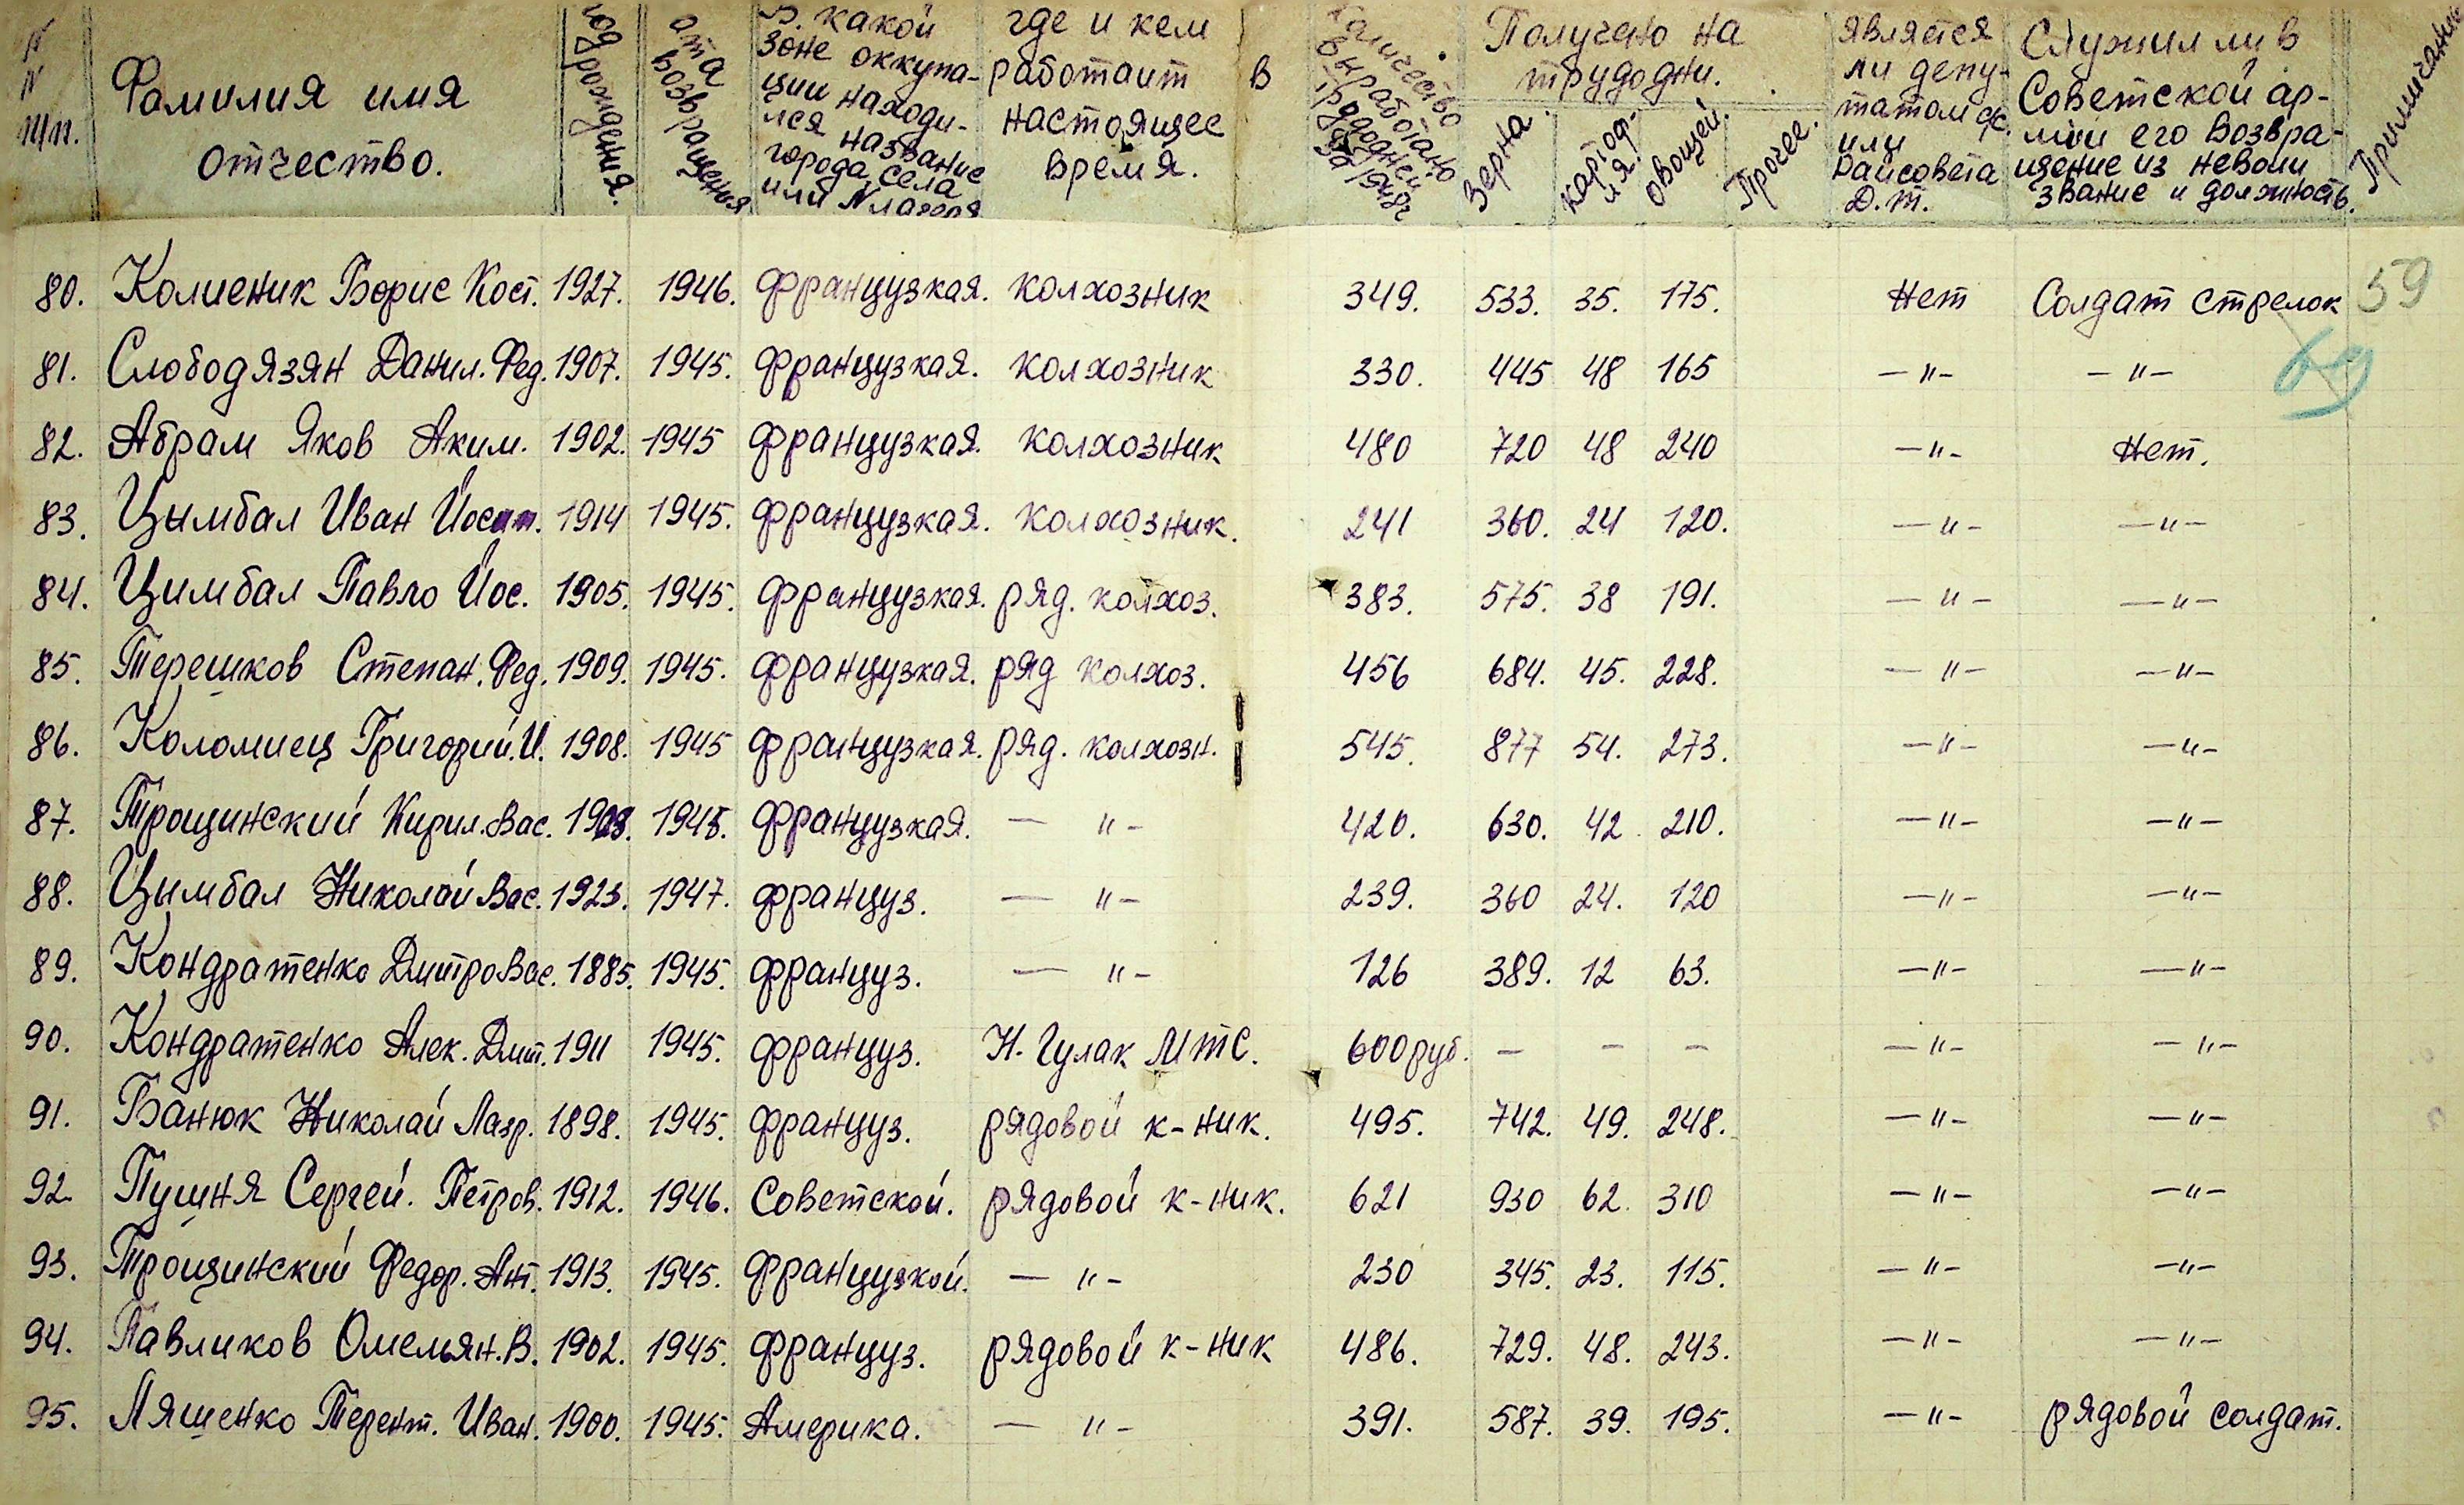 № № п/п.
Фамилия имя отчество.
год рождения.
дата возвращения
В какой зоне оккупации находился название города, села или № лагеря
где и кем работаит в настоящее время.
выработано трудодней за
Получено на трудодни.
Зерна
картоф-ля.
овощей.
Прочее.
является ли депутатом с/с. или Райсовета Д.Т.
Служил ли в Советской армии его возвращение из неволи звание и должность.
Примичание
80. Колиеник Борис Кост. 1927. 1946. французкая. колхозник 349. 533. 35. 175. Нет Солдат стрелок 59
81. Слободязян Данил. Фед. 1907. 1945. французкая. колхозник 330. 445 48 165 — " — — " — 69
82. Абрам Яков Аким. 1902. 1945 французкая. колхозник 480 720 48 240 — " — Нет.
83. Цымбал Иван Иосип. 1914 1945. французкая. колхозник. 241 360. 24 120. — " — — " —
84. Цимбал Павло Иос. 1905. 1945. французкая. ряд. колхоз. 383. 575. 38 191. — " — — " —
85. Терешков Степан. Фед. 1909. 1945. французкая. ряд колхоз. 456 684. 45. 228. — " — — " —
86. Коломиец Григорий. И. 1908. 1945 французкая. ряд. колхозн. 545. 877 54. 273. — " — — " —
87. Трощинский Кирил. Вас. 1945. французкая. — " — 420. 630. 42. 210. — " — — " —
88. Цымбал Николай Вас. 1923. 1947. француз. — " — 239. 360 24. 120 — " — — " —
89. Кондратенко Дмитро Вас. 1885. 1945. француз. — " — 126 389. 12 63. — " — — " —
90. Кондратенко Алек. Дмит. 1911 1945. француз. Н. Гулак МТС. 600 руб. — — — — " — — " —
91. Банюк Николай Лазр. 1898. 1945. француз. рядовой к-ник. 495. 742. 49. 248. — " — — " —
92. Пушня Сергей. Петров. 1912. 1946. Советской. рядовой к-ник. 621 930 62. 310 — " — — " —
93. Трощинский Федор. Ант. 1913. 1945. французкой. — " — 230 345. 23. 115. — " — — " —
94. Павликов Омельян. В. 1902. 1945. француз. рядовой к-ник 486. 729. 48. 243. — " — — " —
95. Ляшенко Терент. Иван. 1900. 1945. Америка. — " — 391. 587. 39. 195. — " — рядовой солдат.